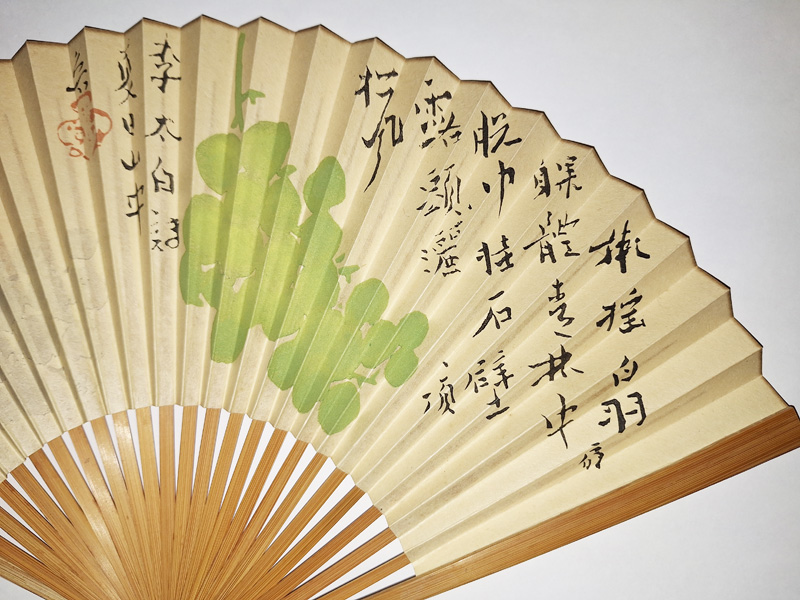 懶搖白羽
躶體青林中
脱巾挂石壁
露灑
頂
松風
李太白詩
夏日山中